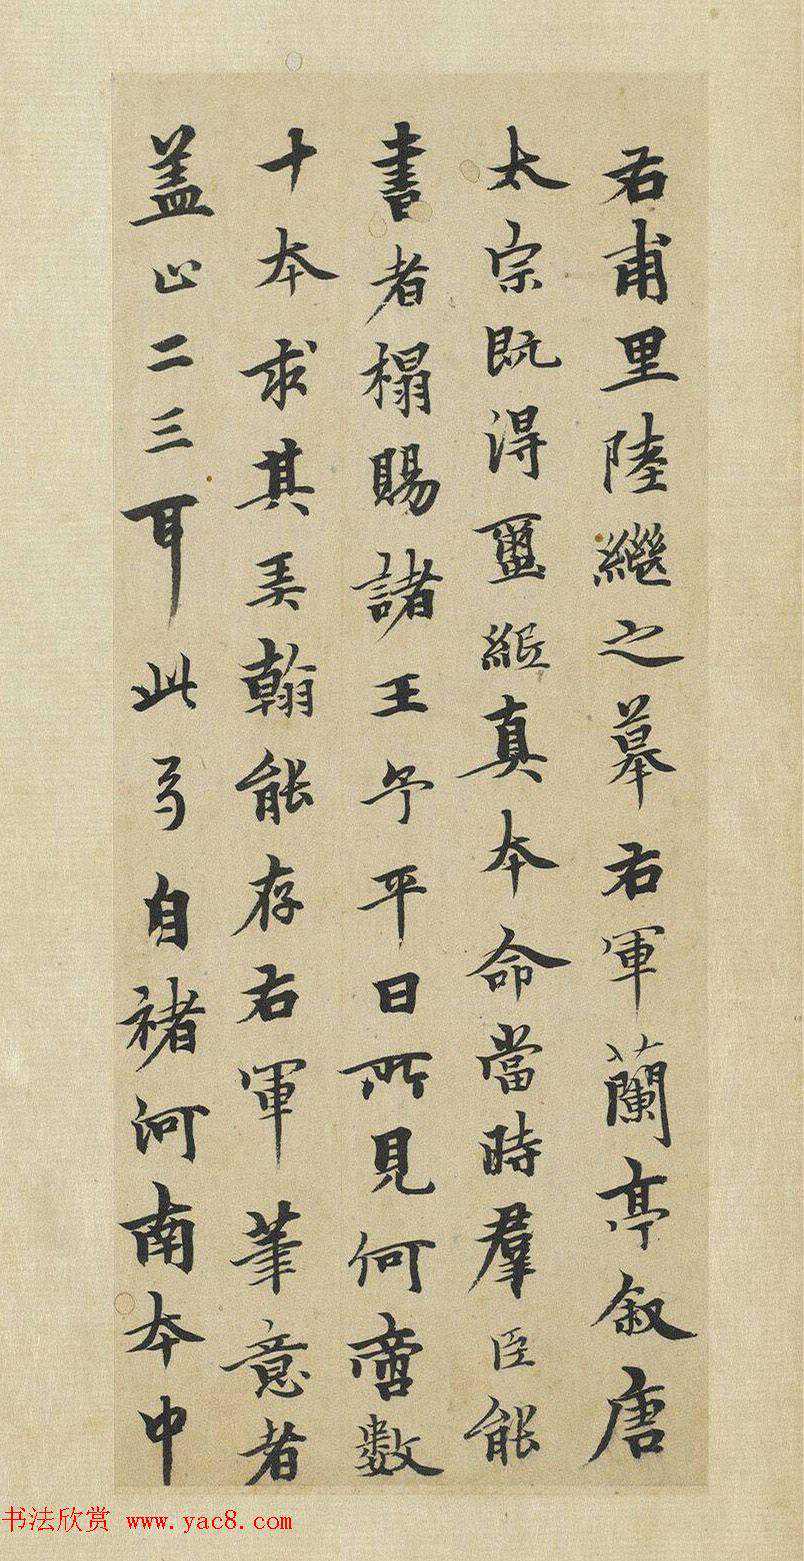 右甫里陸繼之摹右軍蘭亭叙唐
太宗既得蠒紙真本命當時羣臣能
書者榻賜諸王予平日所見何啻數
十本求其美翰能存右軍筆意者
盖止二三耳此弓自褚河南本中
书法欣赏 www.yac8.com